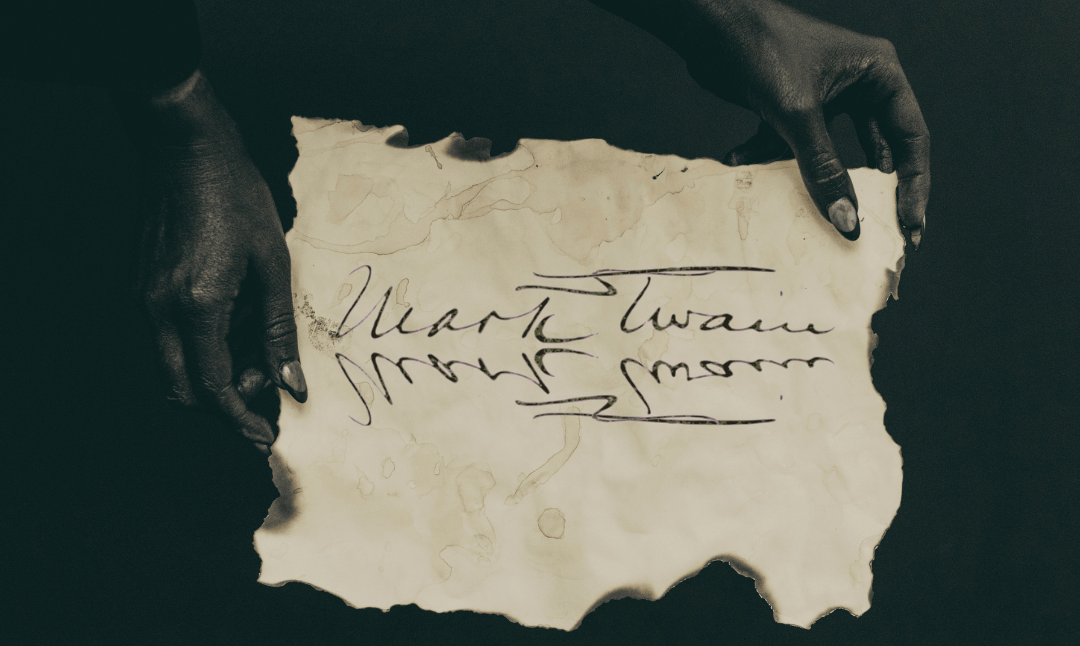 Mark Twain